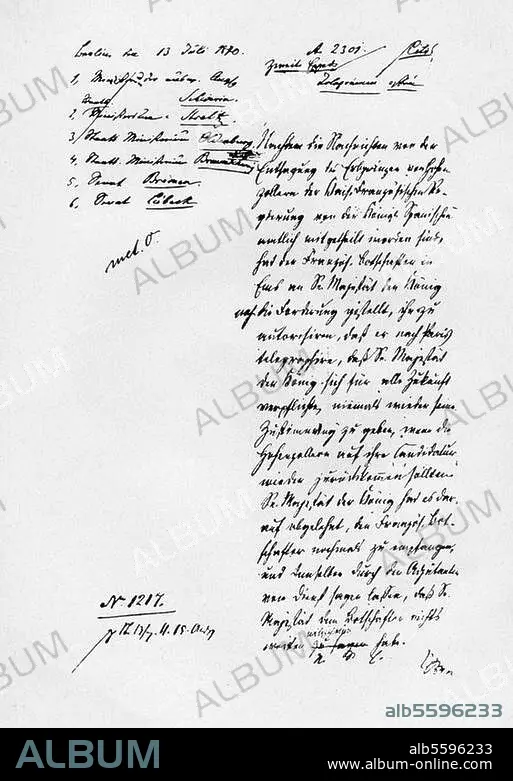 Berlin den 13 Juli 1870.
A. 2301.
Cito!
Telegramm
1,
2, Ministerium
3, Staats Ministerium Oldenburg
4, Staats Ministerium
5, Senat Bremen
6, Senat Lübeck
Nachdem die Nachrichten von der
Entsagung des Erbprinzen von Hohen
zollern der Französischen Re
gierung von der Königl. Spanischen
amtlich mitgetheilt worden sind,
hat der Französ. Botschafter in
Ems an Se Majestät den König
noch die Forderung gestellt, ihn zu
autorisiren, daß er nach Paris
telegraphire, daß Se Majestät
der König sich für alle Zukunft
verpflichte, niemals wieder seine
Zustimmung zu geben, wenn die
Hohenzollern auf ihre Candidatur
wieder zurückkommen sollten.
Se Majestät der König hat es dar
auf abgelehnt, den Französ. Bot-
schafter nochmals zu empfangen,
und demselben durch den Adjutanten
vom Dienst sagen lassen, daß Se
Majestät dem Botschafter nichts
weiter mitzutheilen habe.
No 1217.
ALBUM
ALBUM
ALBUM
ALBUM
ALBUM
ALBUM
ALBUM
ALBUM
ALBUM
ALBUM
alb5596233
ALBUM
alb5596233
www.album-online.com